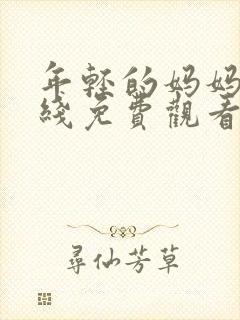 年輕的妈妈
綫免費觀看
尋仙芳草